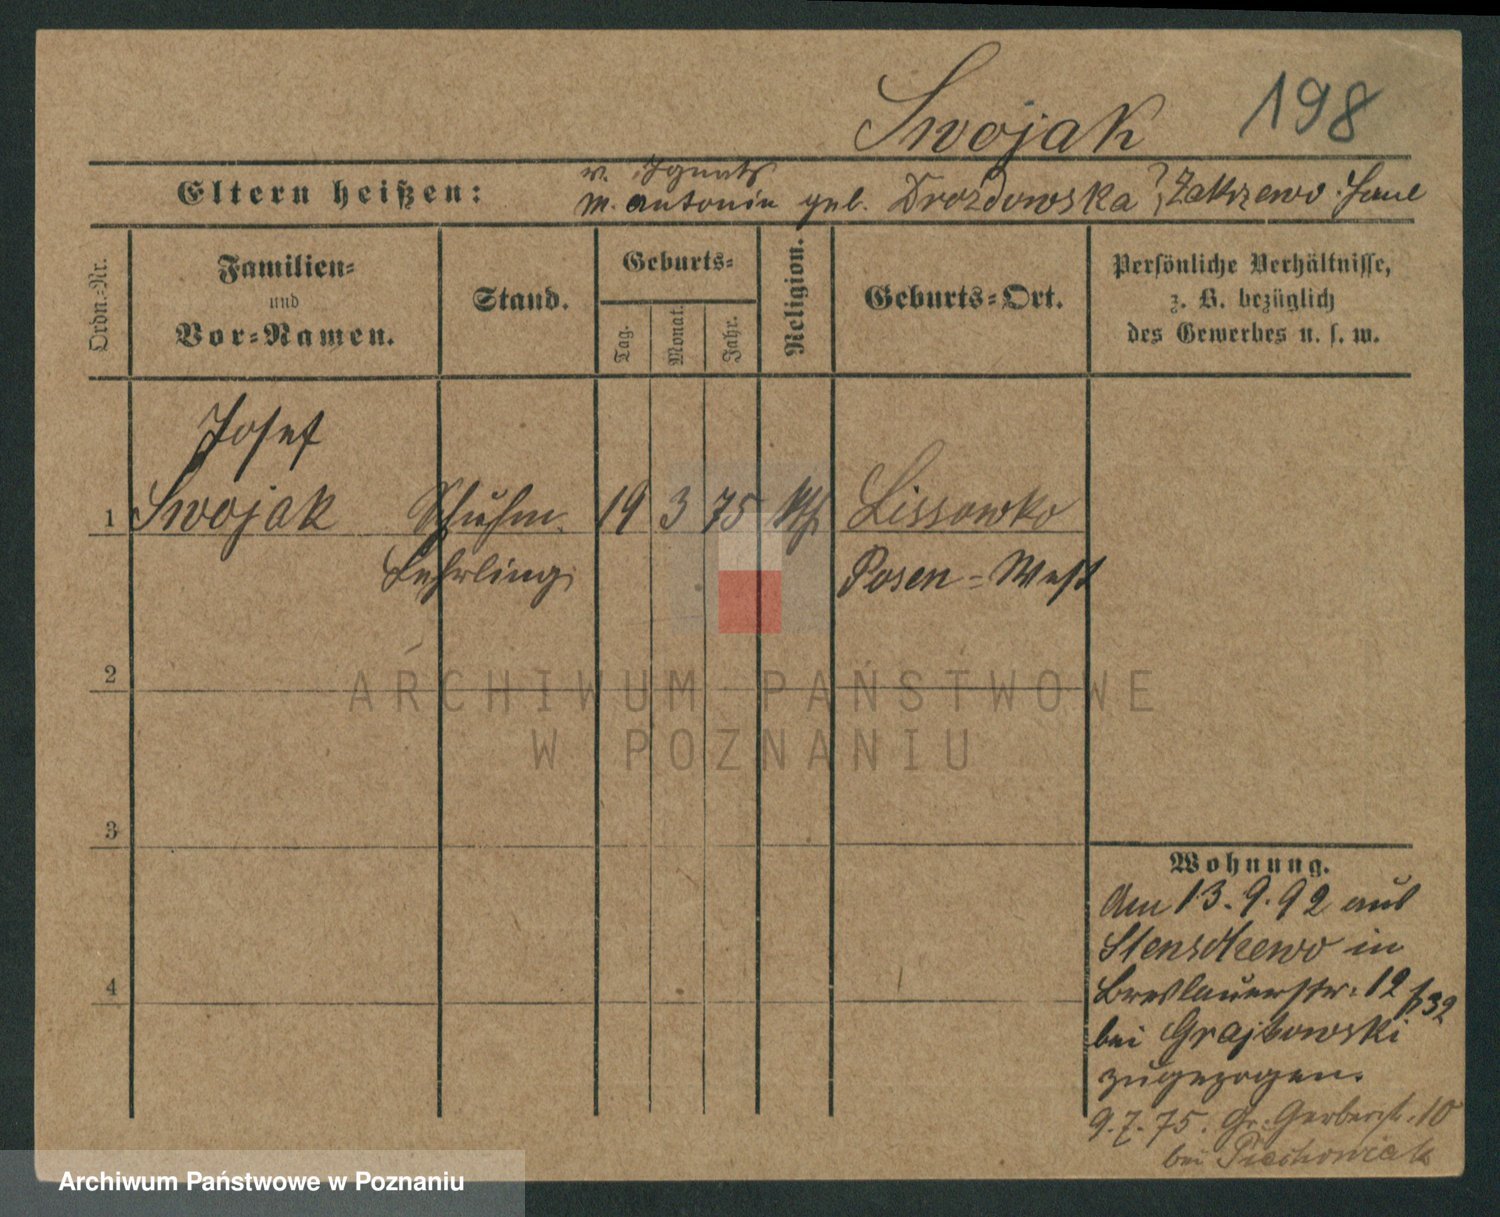 Swojak 198
Eltern heißen: v. Ignatz
M. Antonie geb. Drozdowska, Zakrzewo
Ordn.=Nr.
Familien=
und
Vor=Namen.
Stand.
Geburts=
Tag.
Monat.
Jahr.
Religion.
Geburts=Ort.
Persönliche Verhältnisse,
z. B. bezüglich
des Gewerbes u. s. w.
Josef
1 Swojak Schuhm. 19 3 75 kth Lissowko
Lehrling Posen=West
2
3
4
Wohnung.
Am 13.9.92 aus
Stenschewo in
Breslauerstr. 12
bei Grajkowski
zugezogen.
9.7.75. Gr. Gerberstr. 10
bei Piechowiak
ARCHIWUM PAŃSTWOWE
W POZNANIU
Archiwum Państwowe w Poznaniu